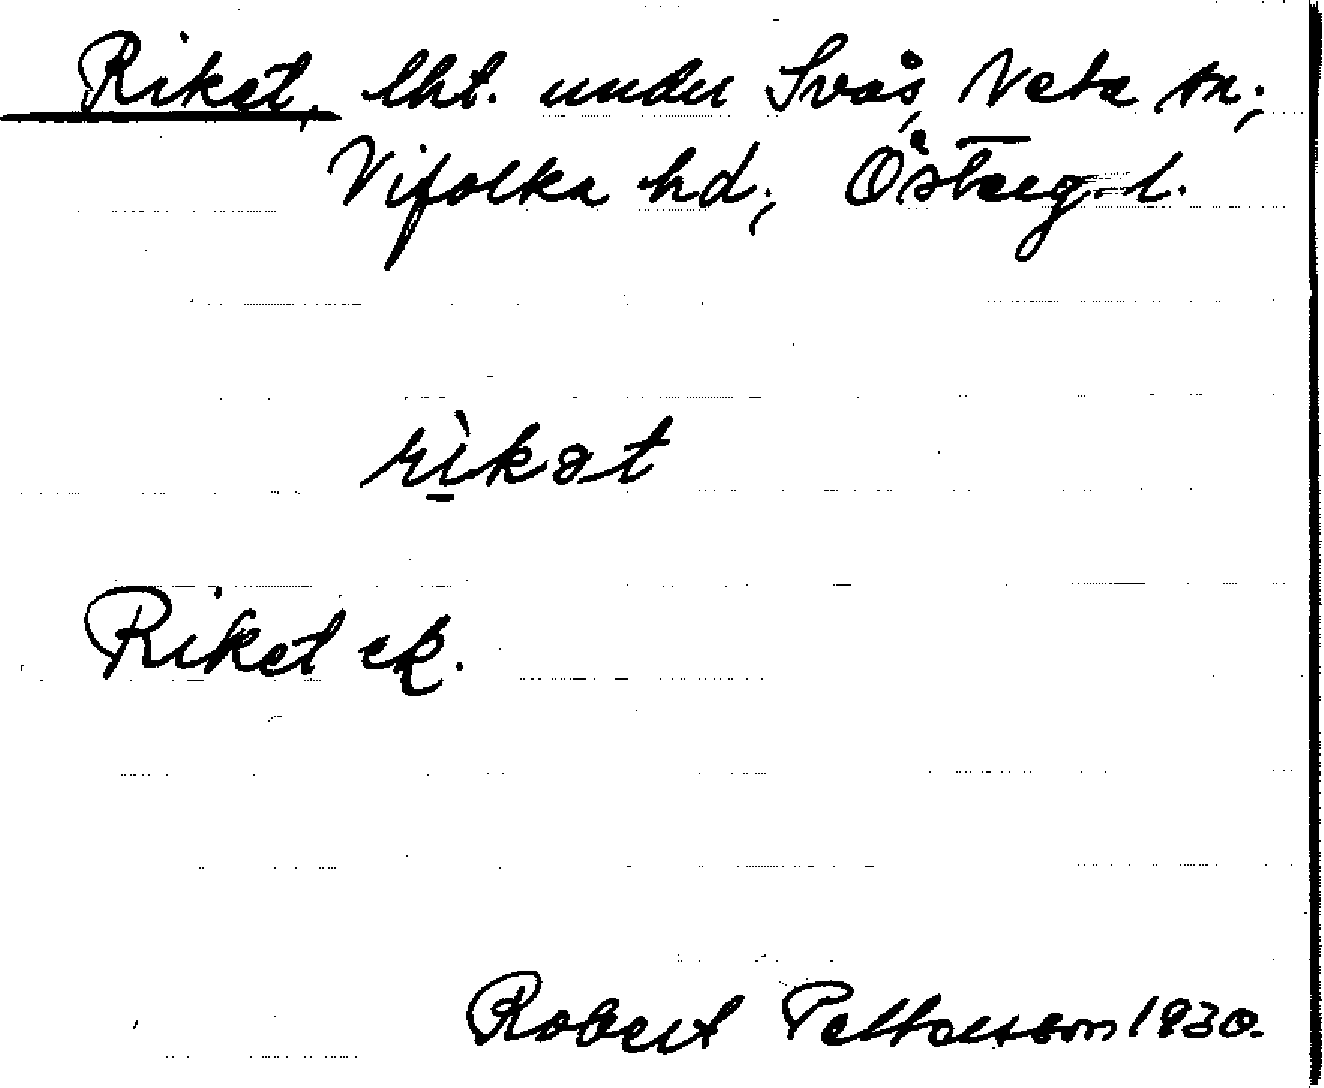 Riket, lht. under Svås, Veta sn;
Vifolka hd, Österg. l.
rìkət
Riket ek.
Robert Pettersson 1930.